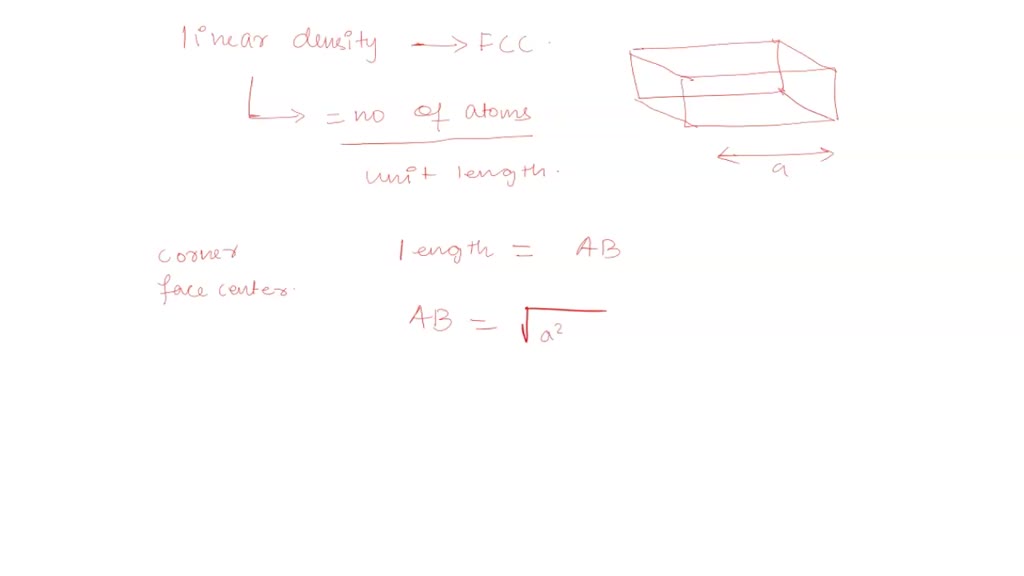 linear density → FCC.
→ = no of atoms
unit length.
a
corner
face center.
length = AB
AB = √a²